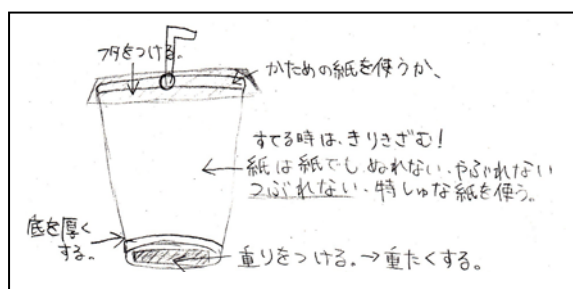 フタをつける。
かための紙を使うか、
すてる時は、きりきざむ!
紙は紙でも、ぬれない、やぶれない
つぶれない、特しゅな紙を使う。
底を厚く
する。
重りをつける。→重たくする。